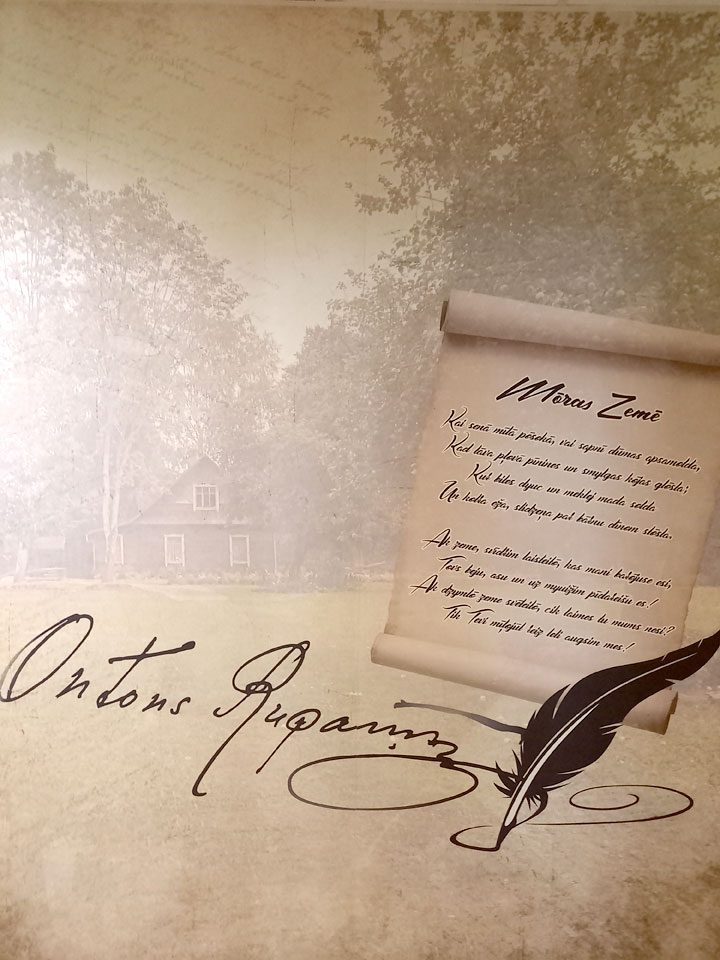 Mōras Zemē
Kai senā mitā pēšokā, vai sapnī dūmas apsamolda,
Kad tāva pļovā pīnines un smylgas kōjas glōsta;
Kur bites dyuc un meklej mada solda
Un kolta eža, slīdzeņa pat bōtnu dīnom stōsta.
Ak zeme, svādlim laisteitō, kas mani
Tovs beju, asu un uz myužim pīdareišu es!
Ak dzymtō zeme svāteitō, cik laimes tu mums nesi?
Tik Tevī mīļojūt leiz leli augsim mes!
Ontons Rupaiņs